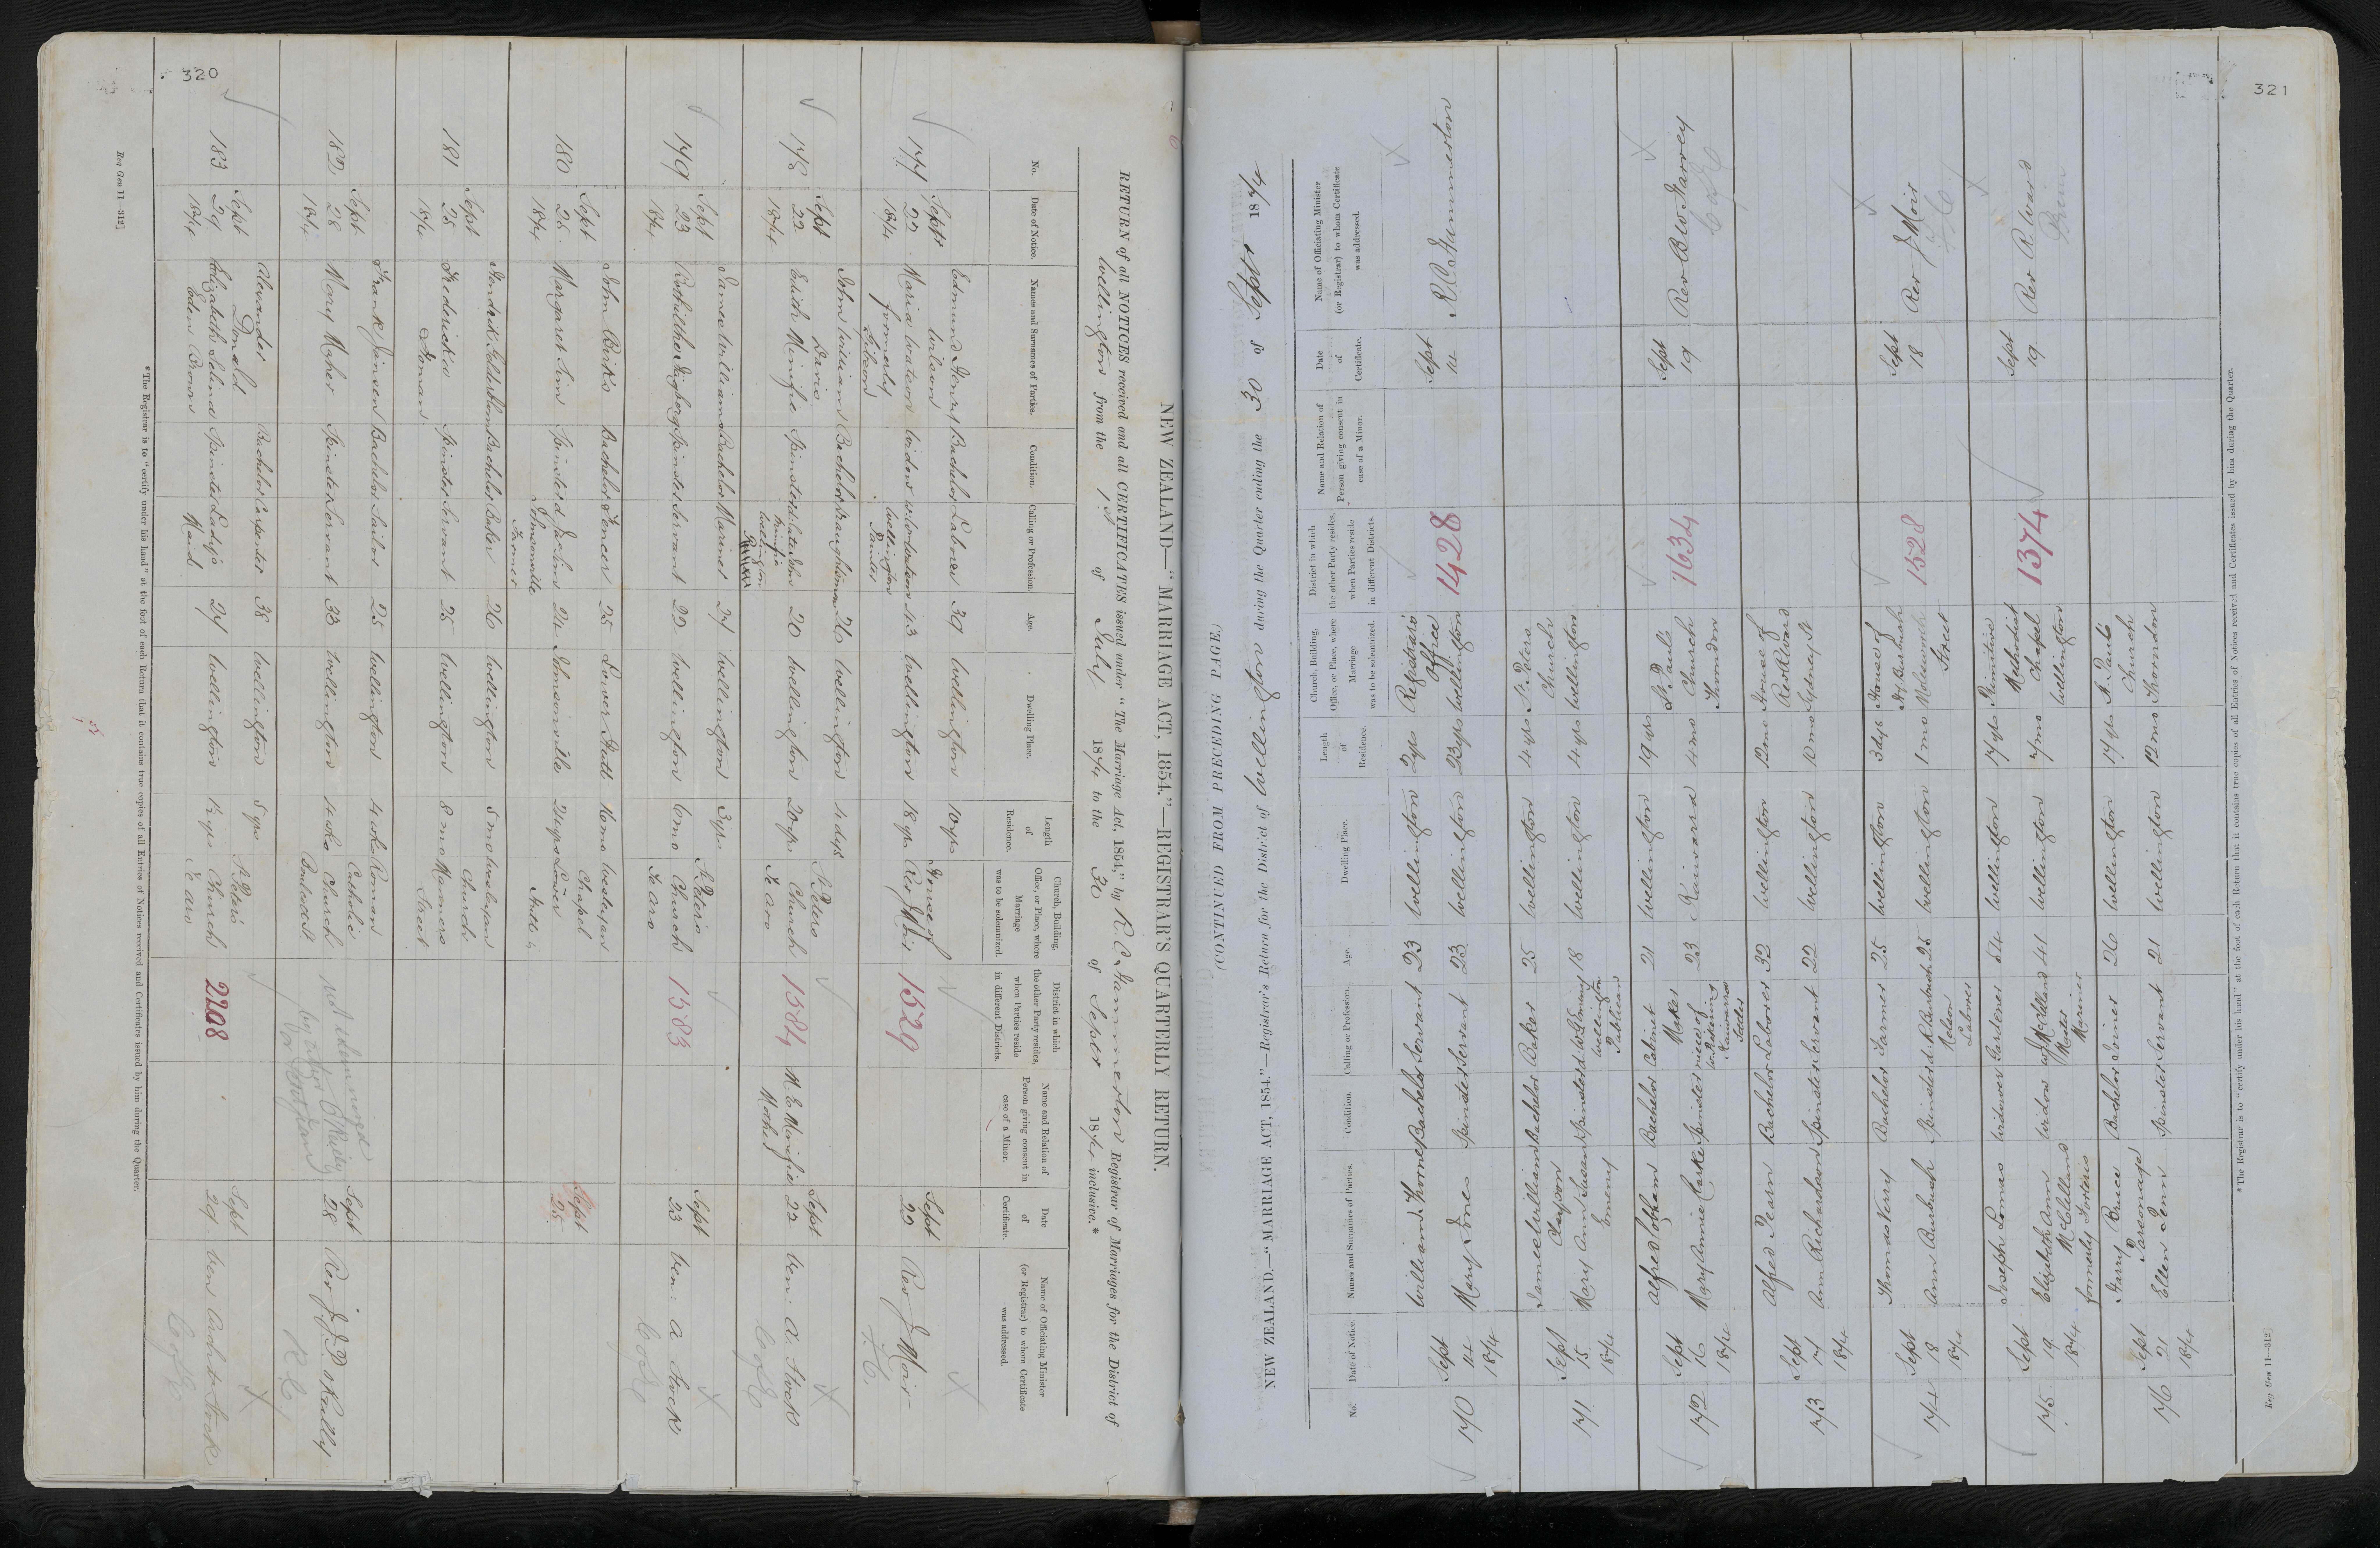 320
NEW ZEALAND—"MARRIAGE ACT, 1854."—REGISTRAR'S QUARTERLY RETURN.
RETURN of all NOTICES received and all CERTIFICATES issued under "The Marriage Act, 1854," by R C Hammerton Registrar of Marriages for the District of
Wellington from the 1st of July 1874 to the 30 of Septr 1874, inclusive.*
No. Date of Notice. Names and Surnames of Parties. Condition. Calling or Profession. Age. Dwelling Place. Length of Residence. Church, Building, Office, or Place, where Marriage was to be solemnized. District in which the other Party resides, when Parties reside in different Districts. Name and Relation of Person giving consent in case of a Minor. Date of Certificate. Name of Officiating Minister (or Registrar) to whom Certificate was addressed.
177 Septr 22 1874 Edmund Henry Wilson Bachelor Laborer 39 Wellington 10 yrs House of Revd J Moir 1529 Sept 22 Rev J Moir
Maria Watson formerly Gibson Widow W Watson Wellington Painter 43 Wellington 18 yrs
178 Sept 22 1874 John William Davis Bachelor Draughtsman 26 Wellington 4 dys St Peters Church Te Aro 1584 M E Minifie Mother Sept 22 Ven: A Stock
Edith Minifie Spinster d. late John Minifie Wellington 20 Wellington 20 yrs
179 Sept 23 1874 James Williams Bachelor Mariner 27 Wellington 3 yrs St Peters Church Te Aro 1583 Sept 23 Ven: A Stock
Spinster Servant 22 Wellington 6 mo
180 Sept 25 1874 John Birks Bachelor Fencer 25 Lower Hutt 16 mo Wesleyan Chapel Lower Hutt Sept 25
Margaret Sim Spinster d John Johnsonville Farmer 24 Johnsonville 24 yrs
181 Sept 25 1874 Bachelor Baker 26 Wellington 5 mo Wesleyan Church Manners Street
Fredericka Homan Spinster Servant 25 Wellington 8 mo
182 Sept 28 1874 Frank Jansen Bachelor Sailor 25 Wellington 4 wks Roman Catholic Church Boulcott St Sept 28 Rev J J P O'Reilly
Mary Maher Spinster Servant 33 Wellington 4 wks
R C
183 Sept 29 1874 Alexander Donald Bachelor Carpenter 38 Wellington 5 yrs St Peters Church Te Aro 2208 Sept 29 Ven Archd Stock
Elizabeth Selina Eden Brown Spinster Lady's Maid 27 Wellington 1½ yrs
C of E
*The Registrar is to "certify under his hand" at the foot of each Return that it contains true copies of all Entries of Notices received and Certificates issued by him during the Quarter.
Reg Gen 11—312]
321
(CONTINUED FROM PRECEDING PAGE.)
NEW ZEALAND.—"MARRIAGE ACT, 1854."—Registrar's Return for the District of Wellington during the Quarter ending the 30 of Septr 1874
No. Date of Notice. Names and Surnames of Parties. Condition. Calling or Profession. Age. Dwelling Place. Length of Residence. Church, Building, Office, or Place, where Marriage was to be solemnized. District in which the other Party resides, when Parties reside in different Districts. Name and Relation of Person giving consent in case of a Minor. Date of Certificate. Name of Officiating Minister (or Registrar) to whom Certificate was addressed.
170 Sept 14 1874 William Thorne Bachelor Servant 23 Wellington 2 yrs Registrars Office Wellington 1428 Sept 14 R C Hammerton
Mary Jones Spinster Servant 23 Wellington 23 yrs
171 Sept 15 1874 James William Clayson Bachelor Baker 25 Wellington 4 yrs St Peters Church Wellington
Mary Ann Susan Emeny Spinster d. W Emeny Wellington Publican 18 Wellington 4 yrs
172 Sept 16 1874 Alfred Cobham Bachelor Cabinet Maker 21 Wellington 19 yrs St Pauls Church Thorndon 1634 Sept 19 Rev B W Harvey
Mary Annie Clarke Spinster niece of W Pickering Kaiwarra Settler 23 Kaiwarra 4 mo
C of E
173 Sept 17 1874 Alfred Pearn Bachelor Laborer 32 Wellington 12 mo House of Rev R Ward Sydney St
Ann Richardson Spinster Servant 22 Wellington 10 mo
174 Sept 18 1874 Thomas Verry Bachelor Farmer 25 Wellington 3 dys House of Molesworth Street 1528 Sept 18 Rev J Moir
Ann Burbush Spinster d. R Burbush Nelson Laborer 25 Wellington 1 mo
175 Sept 19 1874 Joseph Lomas Widower Gardener 54 Wellington 17 yrs Primitive Methodist Chapel Wellington 1374 Sept 19 Rev R Ward
Elizabeth Ann McClelland formerly Forteis Widow of McClelland Master Mariner 41 Wellington 7 mo
176 Sept 21 1874 Harry Bruce Parsonage Bachelor Joiner 26 Wellington 17 yrs St Pauls Church Thorndon
Ellen Penn Spinster Servant 21 Wellington 12 mo
*The Registrar is to "certify under his hand" at the foot of each Return that it contains true copies of all Entries of Notices received and Certificates issued by him during the Quarter.
Reg Gen 11—312]